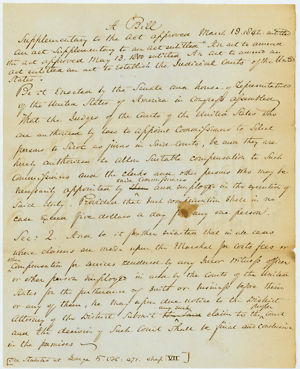 A Bill
Supplementary to the act approved March 19. 1842 entitled
An act Supplementary to an act entitled "An act to amend
the act approved May 13. 1800 entitled An act to amend an
act entitled an act to establish the Judicial Courts of the United
States".
Be it Enacted by the Senate and house of Representatives
of the United States of America in Congress assembled,
That the Judges of the Courts of the United States who
are authorized by law to appoint Commissioners to select
persons to serve as jurors in said Courts, be and they are
hereby authorized to allow suitable compensation to such
Commissioners and the clerk and other persons who may be
necessarily appointed by said Commissioners and employed in the execution of
said duty. Provided that such compensation shall in no
case exceed five dollars a day for any one person.
Sec: 2. And be it further enacted that in all cases
where claims are made upon the Marshal for costs fees or
compensation for services rendered by any Juror Witness officer
or other person employed in aid by the Courts of the United
States for the furtherance of suit or business before them
or any of them, he may upon due notice to the District
Attorney of the District submit any such claim to the Court
and the decision of such Court shall be final and conclusive
in the premises
In Statutes at Large 5 Vol. 471. chap VII